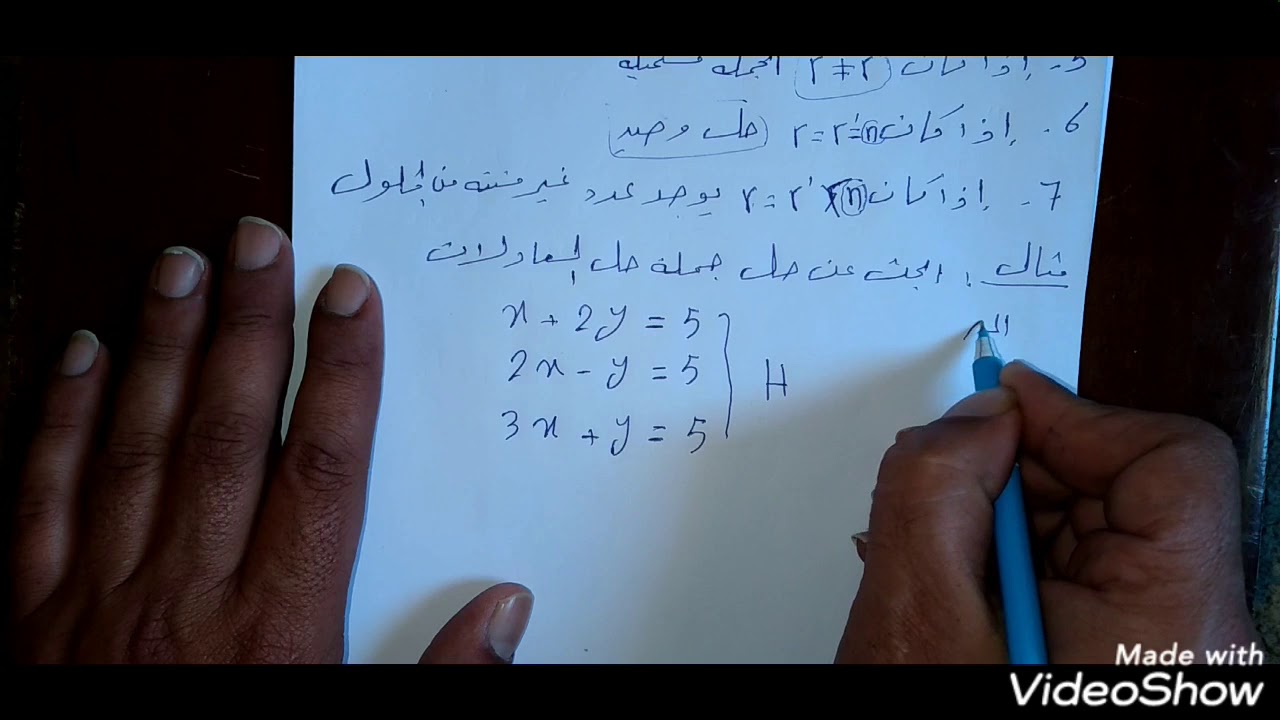 5 - إذا كان r ≠ r' الجملة مستحيلة
6 - إذا كان r = r' = n حل وحيد
7 - إذا كان r = r' < n يوجد عدد غير منته من الحلول
مثال : ابحث عن حل جملة حل المعادلات
x + 2y = 5
2x - y = 5
3x + y = 5
H
Made with
VideoShow